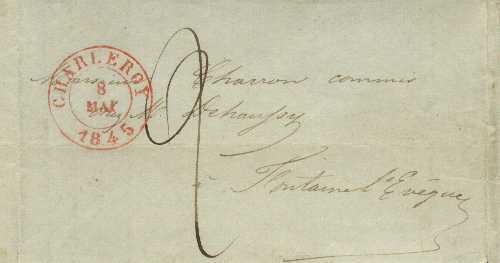 CHARLEROY
8
MAI
1845
2
Monsieur Charron commis
chez Mr. Dehaussy
à Fontaine l'Evêque